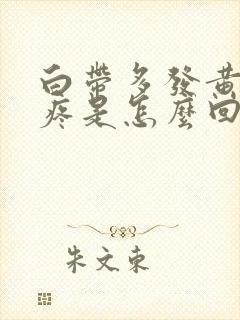 白帶多發黃
疼是怎麼回
朱文東